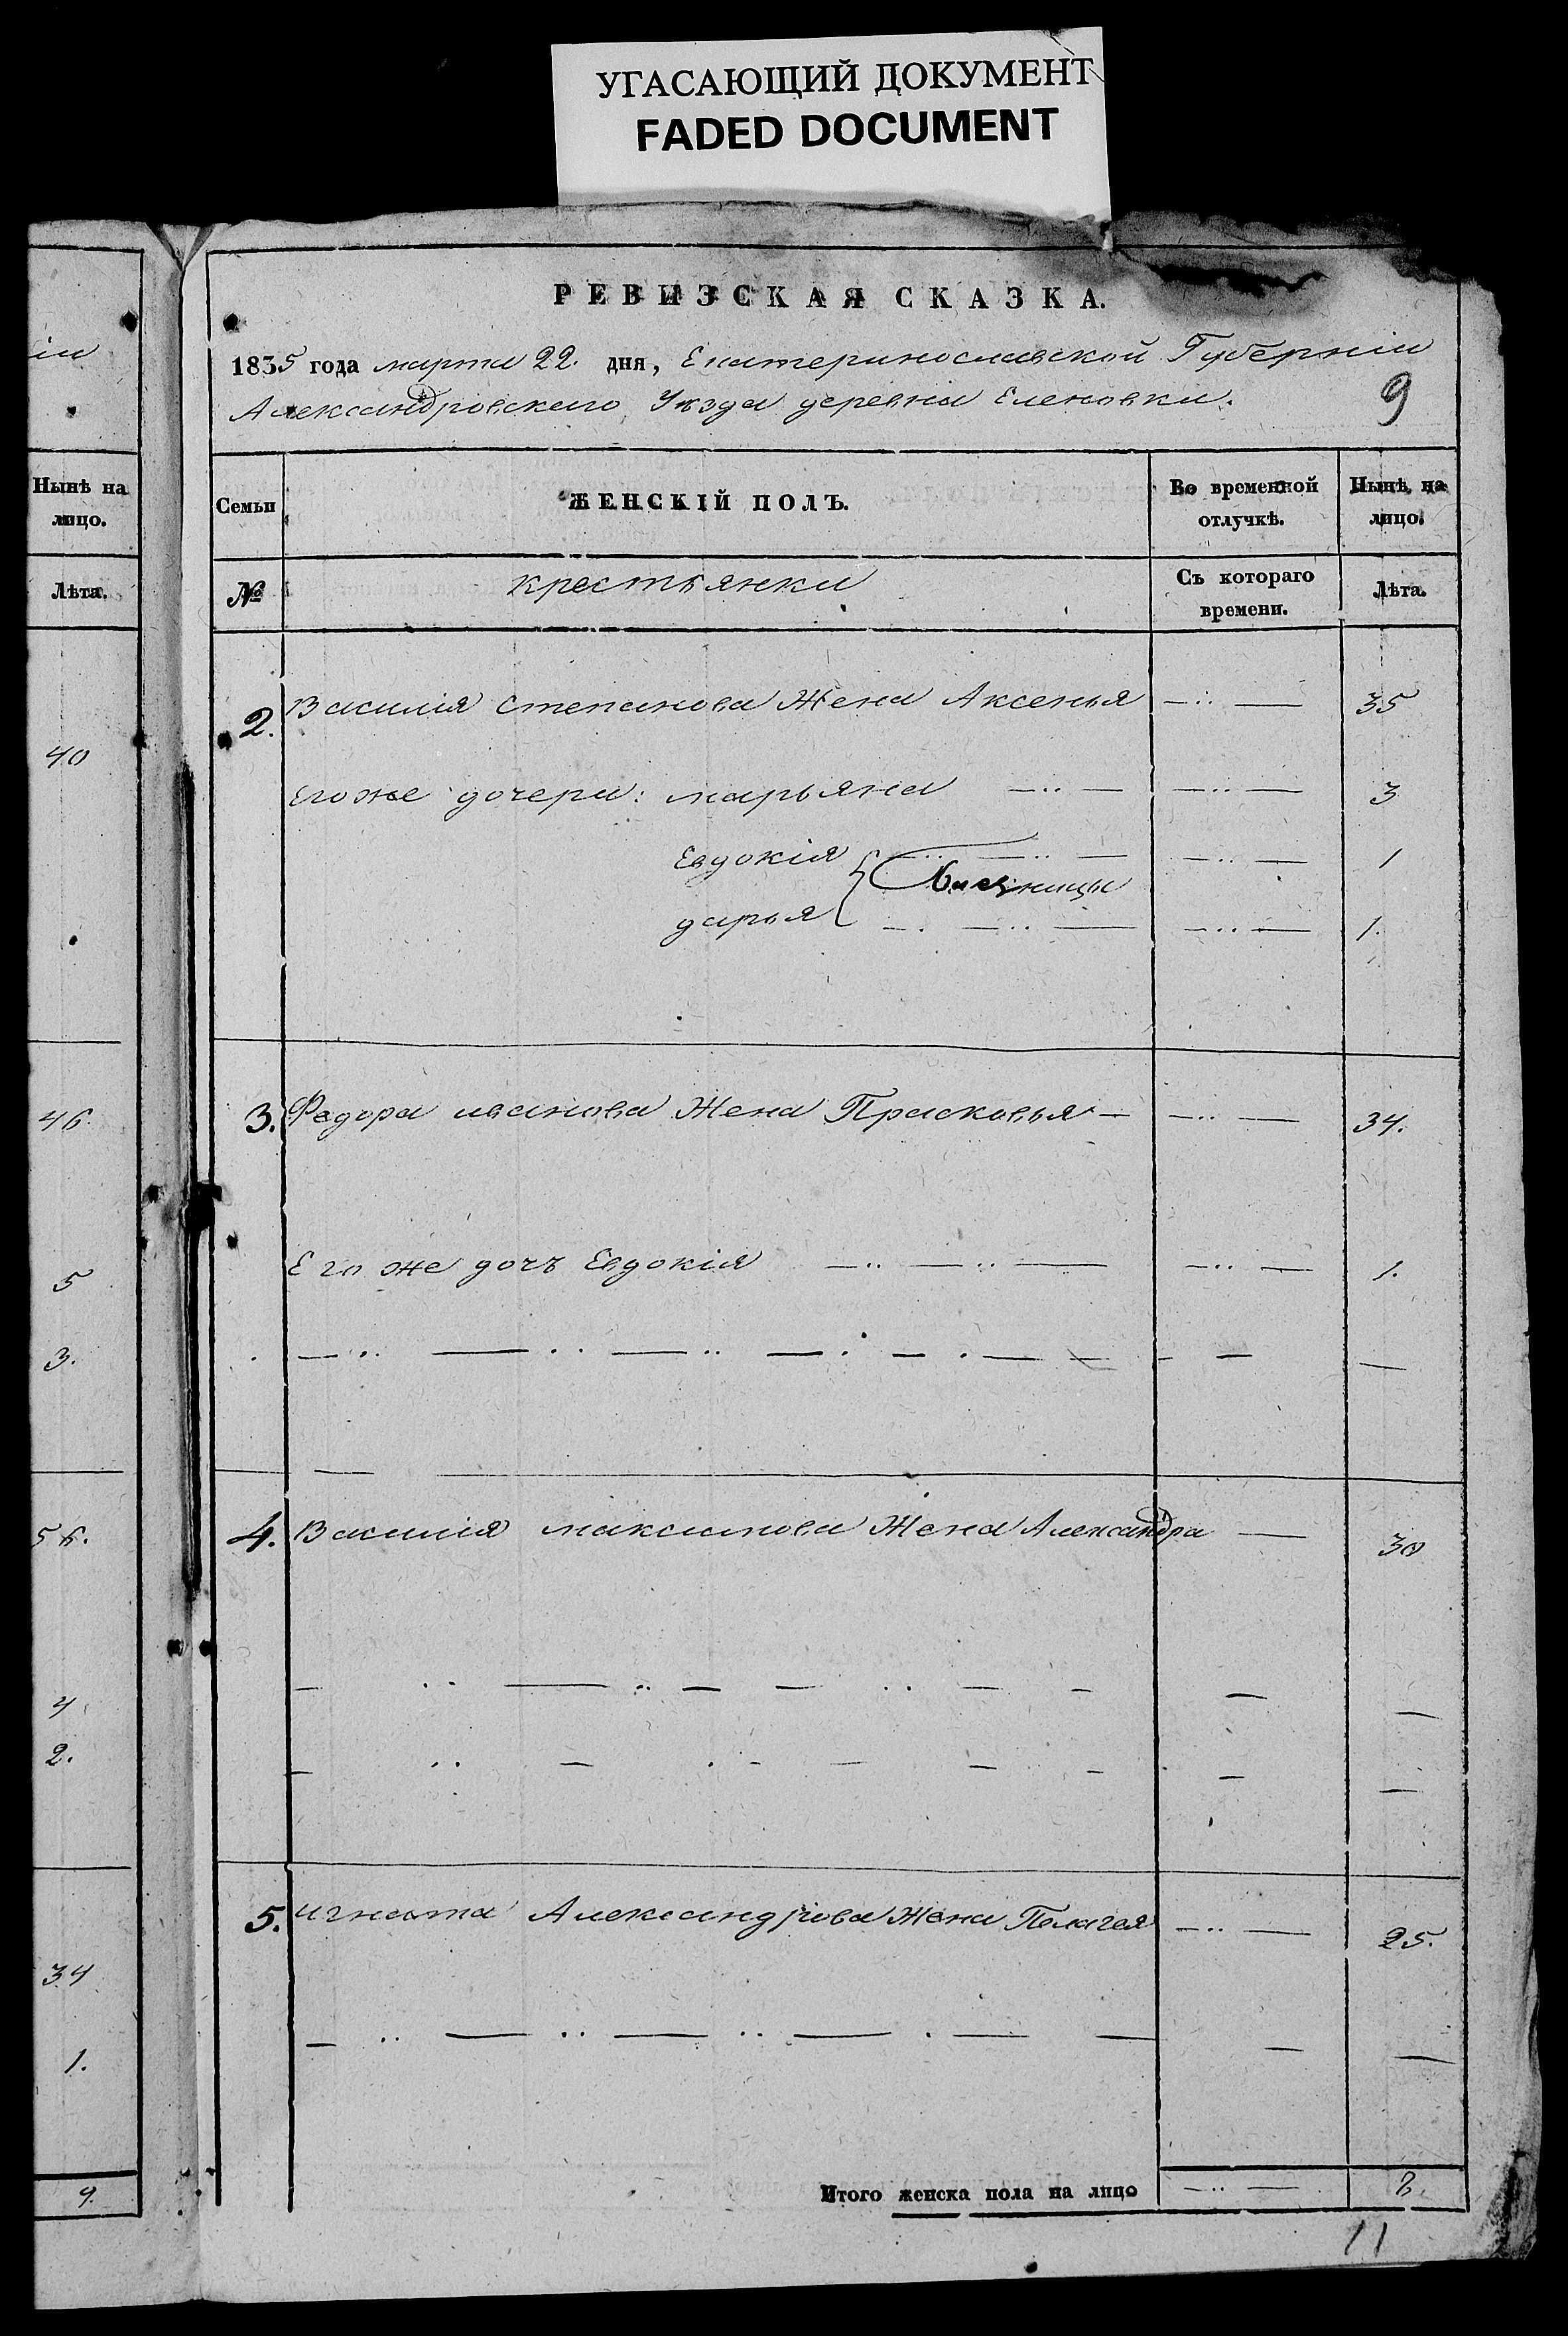 УГАСАЮЩИЙ ДОКУМЕНТ
FADED DOCUMENT
іи
Нынѣ на
лицо.
Лѣта.
40
46.
5
3.
56.
4
2.
34
1.
9.
РЕВИЗСКАЯ СКАЗКА.
1835 года марта 22. дня, Екатеринославской Губерніи
Александровскаго Уѣзда деревни Еленовки.
9
Семьи
ЖЕНСКІЙ ПОЛЪ.
Во временной
отлучкѣ.
Нынѣ на
лицо.
№
крестьянки
Съ котораго
времени.
Лѣта.
2. Василія Степанова Жена Аксенья 35
Его же дочери: марьяна 3
Евдокія 1
близницы
дарья 1.
3. Федора иванова Жена Прасковья 34.
Его же дочь Евдокія 1.
4. Василія максимова Жена Александра 30
5. игната Александрова Жена Пелагея 25.
Итого женска пола на лицо 8.
11